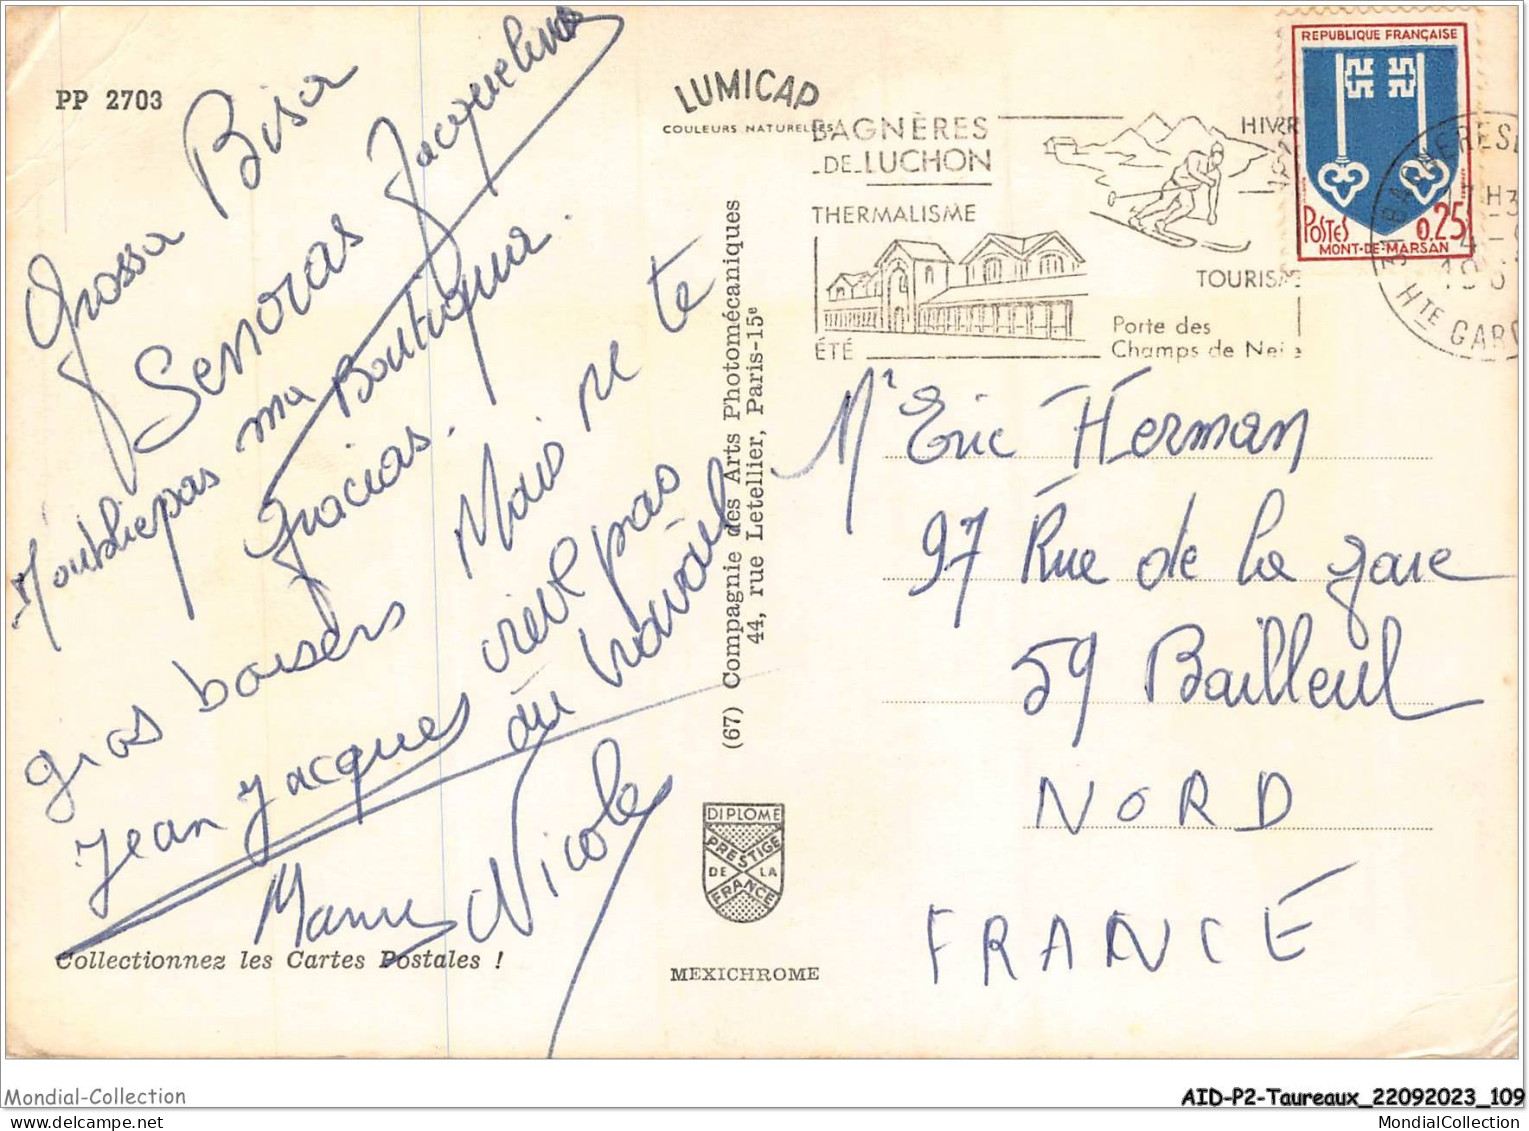 PP 2703
LUMICAP
COULEURS NATURELLES
BAGNÈRES
-DE-LUCHON
THERMALISME
ÉTÉ
HIVER
TOURISME
Porte des
Champs de Neige
REPUBLIQUE FRANÇAISE
POSTES 0,25
MONT-DE-MARSAN
HTE GAR
Grossa Bisa
Senoras Jacquelina
N'oublie pas ma Boutiqua.
Gracias.
Mais ne te
crève pas
au travail
gros baisers
Jean Jacques
Mamy Nicole
Collectionnez les Cartes Postales !
(67) Compagnie des Arts Photomécaniques
44, rue Letellier, Paris-15e
DIPLOME
PRESTIGE
DE LA
FRANCE
MEXICHROME
Mr Eric Herman
97 Rue de la gare
59 Bailleul
NORD
FRANCE
Mondial-Collection
AID-P2-Taureaux_22092023_109
MondialCollection